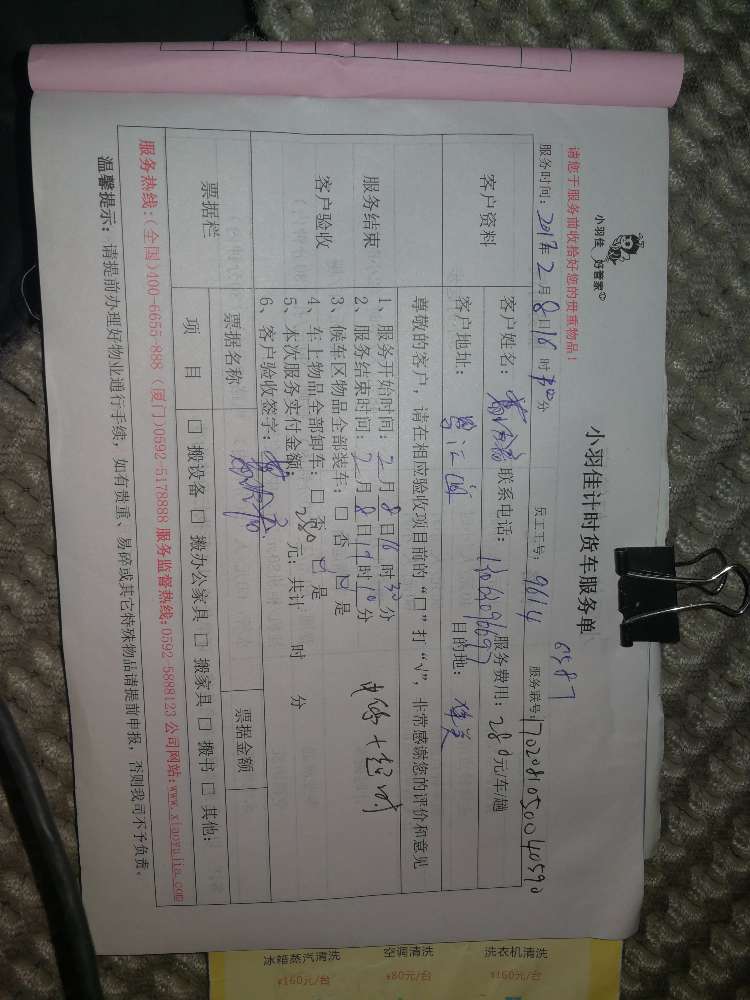 小羽佳 好管家
小羽佳计时货车服务单
请您于服务前收拾好您的贵重物品!
6587
服务时间: 2017年 2月 8日 16时 30分 员工工号: 9614 服务联号: 1702081050040590
客户资料
客户姓名: 联系电话: 服务费用: 280元/车/趟
客户地址: 目的地:
尊敬的客户, 请在相应验收项目前的“口”打“√”, 非常感谢您的评价和意见
服务结束
客户验收
1、服务开始时间: 2月 8日 16时 30分
2、服务结束时间: 2月 8日 17时 10分
3、候车区物品全部装车: □ 否 ☑ 是
4、车上物品全部卸车: □ 否 ☑ 是
5、本次服务实付金额: 280 元; 共计 时 分
6、客户验收签字:
票据栏
票据名称 票据金额
项 目 □ 搬设备 □ 搬办公家具 □ 搬家具 □ 搬书 □ 其他:
服务热线:(全国)400-6655-888 (厦门)0592-5178888 服务监督热线:0592-5888123 公司网站:www.xiaoyujia.com
温馨提示: 请提前办理好物业通行手续, 如有贵重、易碎或其它特殊物品请提前申报, 否则我司不予负责。
洗衣机清洗
¥160元/台
空调清洗
¥80元/台
冰箱蒸汽清洗
¥160元/台